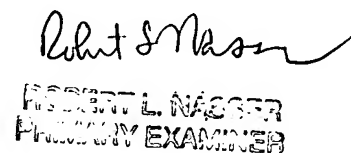 Robert L Nasser
ROBERT L. NASSER
PRIMARY EXAMINER